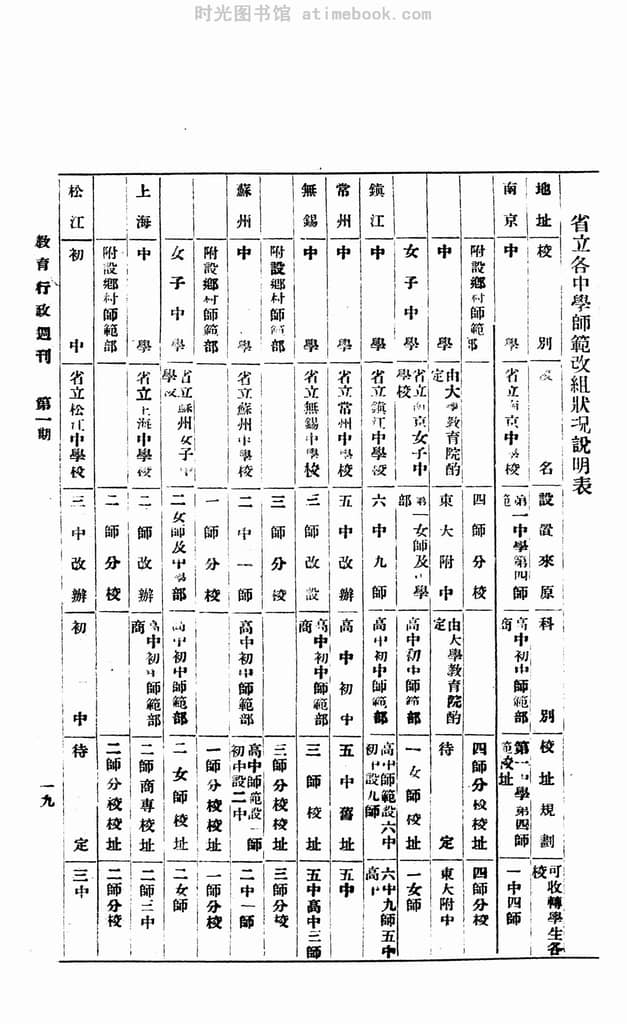 时光图书馆 atimebook.com
省立各中學師範改組狀況說明表
地址 校別 名 設置來原 科別 校址規劃 可收轉學生各校
南京 中學 省立南京中學校 第一中學第四師範 高中初中師範部商 第一中學第四師範校址 一中四師
附設鄉村師範部 四師分校 四師分校校址 四師分校
中學 由大學教育院酌定 東大附中 由大學教育院酌定 待定 東大附中
女子中學 省立南京女子中學校 第一女師及中學部 高中初中師範部 一女師校址 一女師
鎮江 中學 省立鎮江中學校 六中九師 高中初中師範部 高中師範設六中初中設九師 六中九師五中高中
常州 中學 省立常州中學校 五中改辦 高中初中 五中舊址 五中
無錫 中學 省立無錫中學校 三師改設 高中初中師範部商 三師校址 五中高中三師
附設鄉村師範部 三師分校 三師分校校址 三師分校
蘇州 中學 省立蘇州中學校 二中一師 高中初中師範部 高中師範設一師初中設二中 二中一師
附設鄉村師範部 一師分校 一師分校校址 一師分校
女子中學 省立蘇州女子中學校 二女師及中學部 高中初中師範部 二女師校址 二女師
上海 中學 省立上海中學校 二師改辦 高中初中師範部商 二師商專校址 二師三中
附設鄉村師範部 二師分校 二師分校校址 二師分校
松江 初中 省立松江中學校 三中改辦 初中 待定 三中
教育行政週刊 第一期 一九